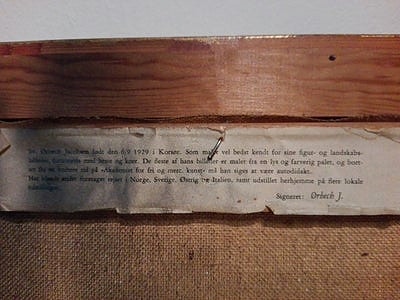 Sv. Orbech Jacobsen født den 6/9 1929 i Korsør. Som maler vel bedst kendt for sine figur- og landskabs-
billeder, fortrinsvis med heste og køer. De fleste af hans billeder er malet fra en lys og farverig palet, og bort-
set fra en kortere tid på »Akademiet for fri og merc. kunst« må han siges at være autodidakt.
Har blandt andet foretaget rejser i Norge, Sverige, Østrig og Italien, samt udstillet herhjemme på flere lokale
udstillinger.
Signeret: Orbech J.